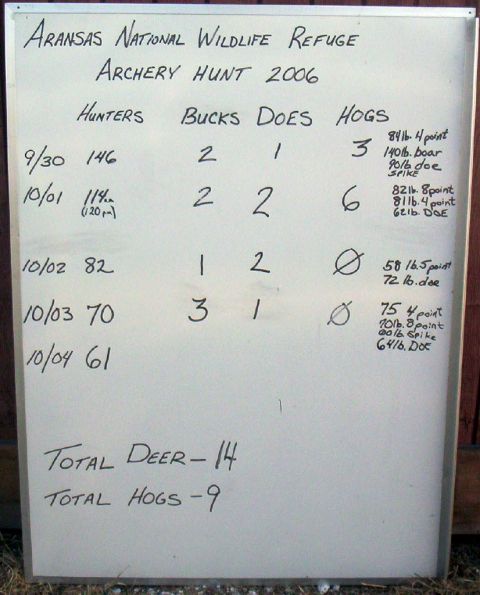 ARANSAS NATIONAL WILDLIFE REFUGE
ARCHERY HUNT 2006
HUNTERS BUCKS DOES HOGS
9/30 146 2 1 3
84lb. 4 point
140lb. boar
90lb doe
SPIKE
10/01 114am 2 2 6
(120 pm)
82lb. 8point
81lb. 4 point
62lb. DOE
10/02 82 1 2 Ø
58 lb. 5 point
72 lb. doe
10/03 70 3 1 Ø
75 4 point
70lb. 8 point
lb. Spike
64lb. DOE
10/04 61
TOTAL DEER - 14
TOTAL HOGS - 9